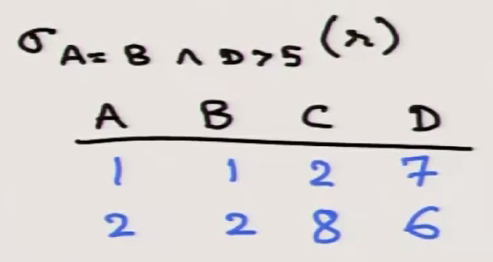 σ A=B ∧ D>5 (r)
A B C D
1 1 2 7
2 2 8 6